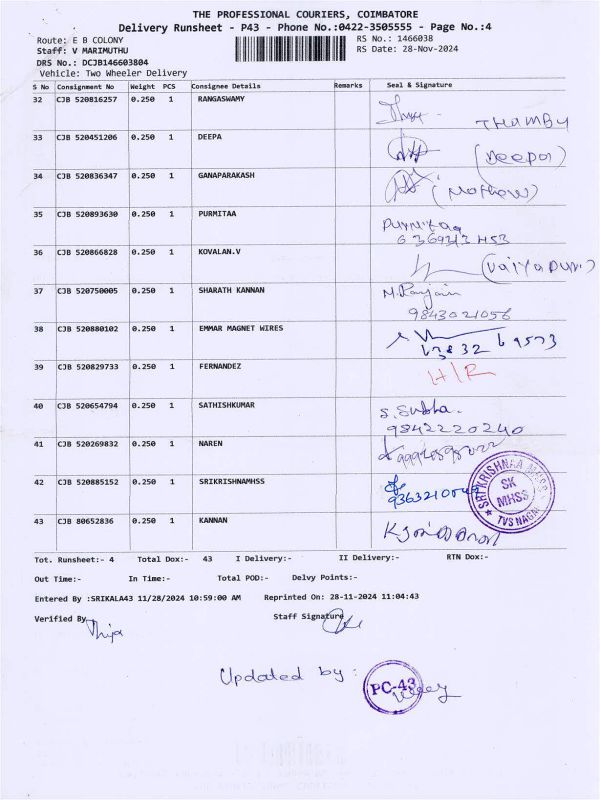 THE PROFESSIONAL COURIERS, COIMBATORE
Delivery Runsheet - P43 - Phone No.:0422-3505555 - Page No.:4
Route: E B COLONY RS No.: 1466038
Staff: V MARIMUTHU RS Date: 28-Nov-2024
DRS No.: DCJB146603804
Vehicle: Two Wheeler Delivery
S No Consignment No Weight PCS Consignee Details Remarks Seal & Signature
32 CJB 520816257 0.250 1 RANGASWAMY
THAMBU
33 CJB 520451206 0.250 1 DEEPA (Deepa)
34 CJB 520836347 0.250 1 GANAPARAKASH (Mathew)
35 CJB 520893630 0.250 1 PURMITAA Purmitaa
36 CJB 520866828 0.250 1 KOVALAN.V (Vaiyapuri)
37 CJB 520750005 0.250 1 SHARATH KANNAN M. Ranjain
9843021056
38 CJB 520880102 0.250 1 EMMAR MAGNET WIRES
63832 69573
39 CJB 520829733 0.250 1 FERNANDEZ H/R
40 CJB 520654794 0.250 1 SATHISHKUMAR S. Subha.
9842220240
41 CJB 520269832 0.250 1 NAREN
42 CJB 520885152 0.250 1 SRIKRISHNAMHSS
SRI KRISHNAA MHSS
SK
MHSS
TVS NAGAR
43 CJB 80652836 0.250 1 KANNAN
Tot. Runsheet:- 4 Total Dox:- 43 I Delivery:- II Delivery:- RTN Dox:-
Out Time:- In Time:- Total POD:- Delvy Points:-
Entered By :SRIKALA43 11/28/2024 10:59:00 AM Reprinted On: 28-11-2024 11:04:43
Verified By Staff Signature
Thija
Updated by :
PC-43